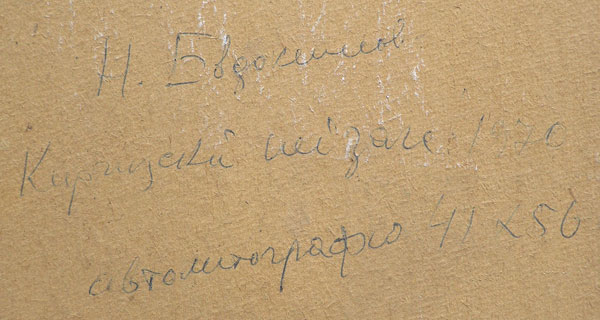 Н. Евдокимов
Киргизский пейзаж 1970
автолитография 41 х 56